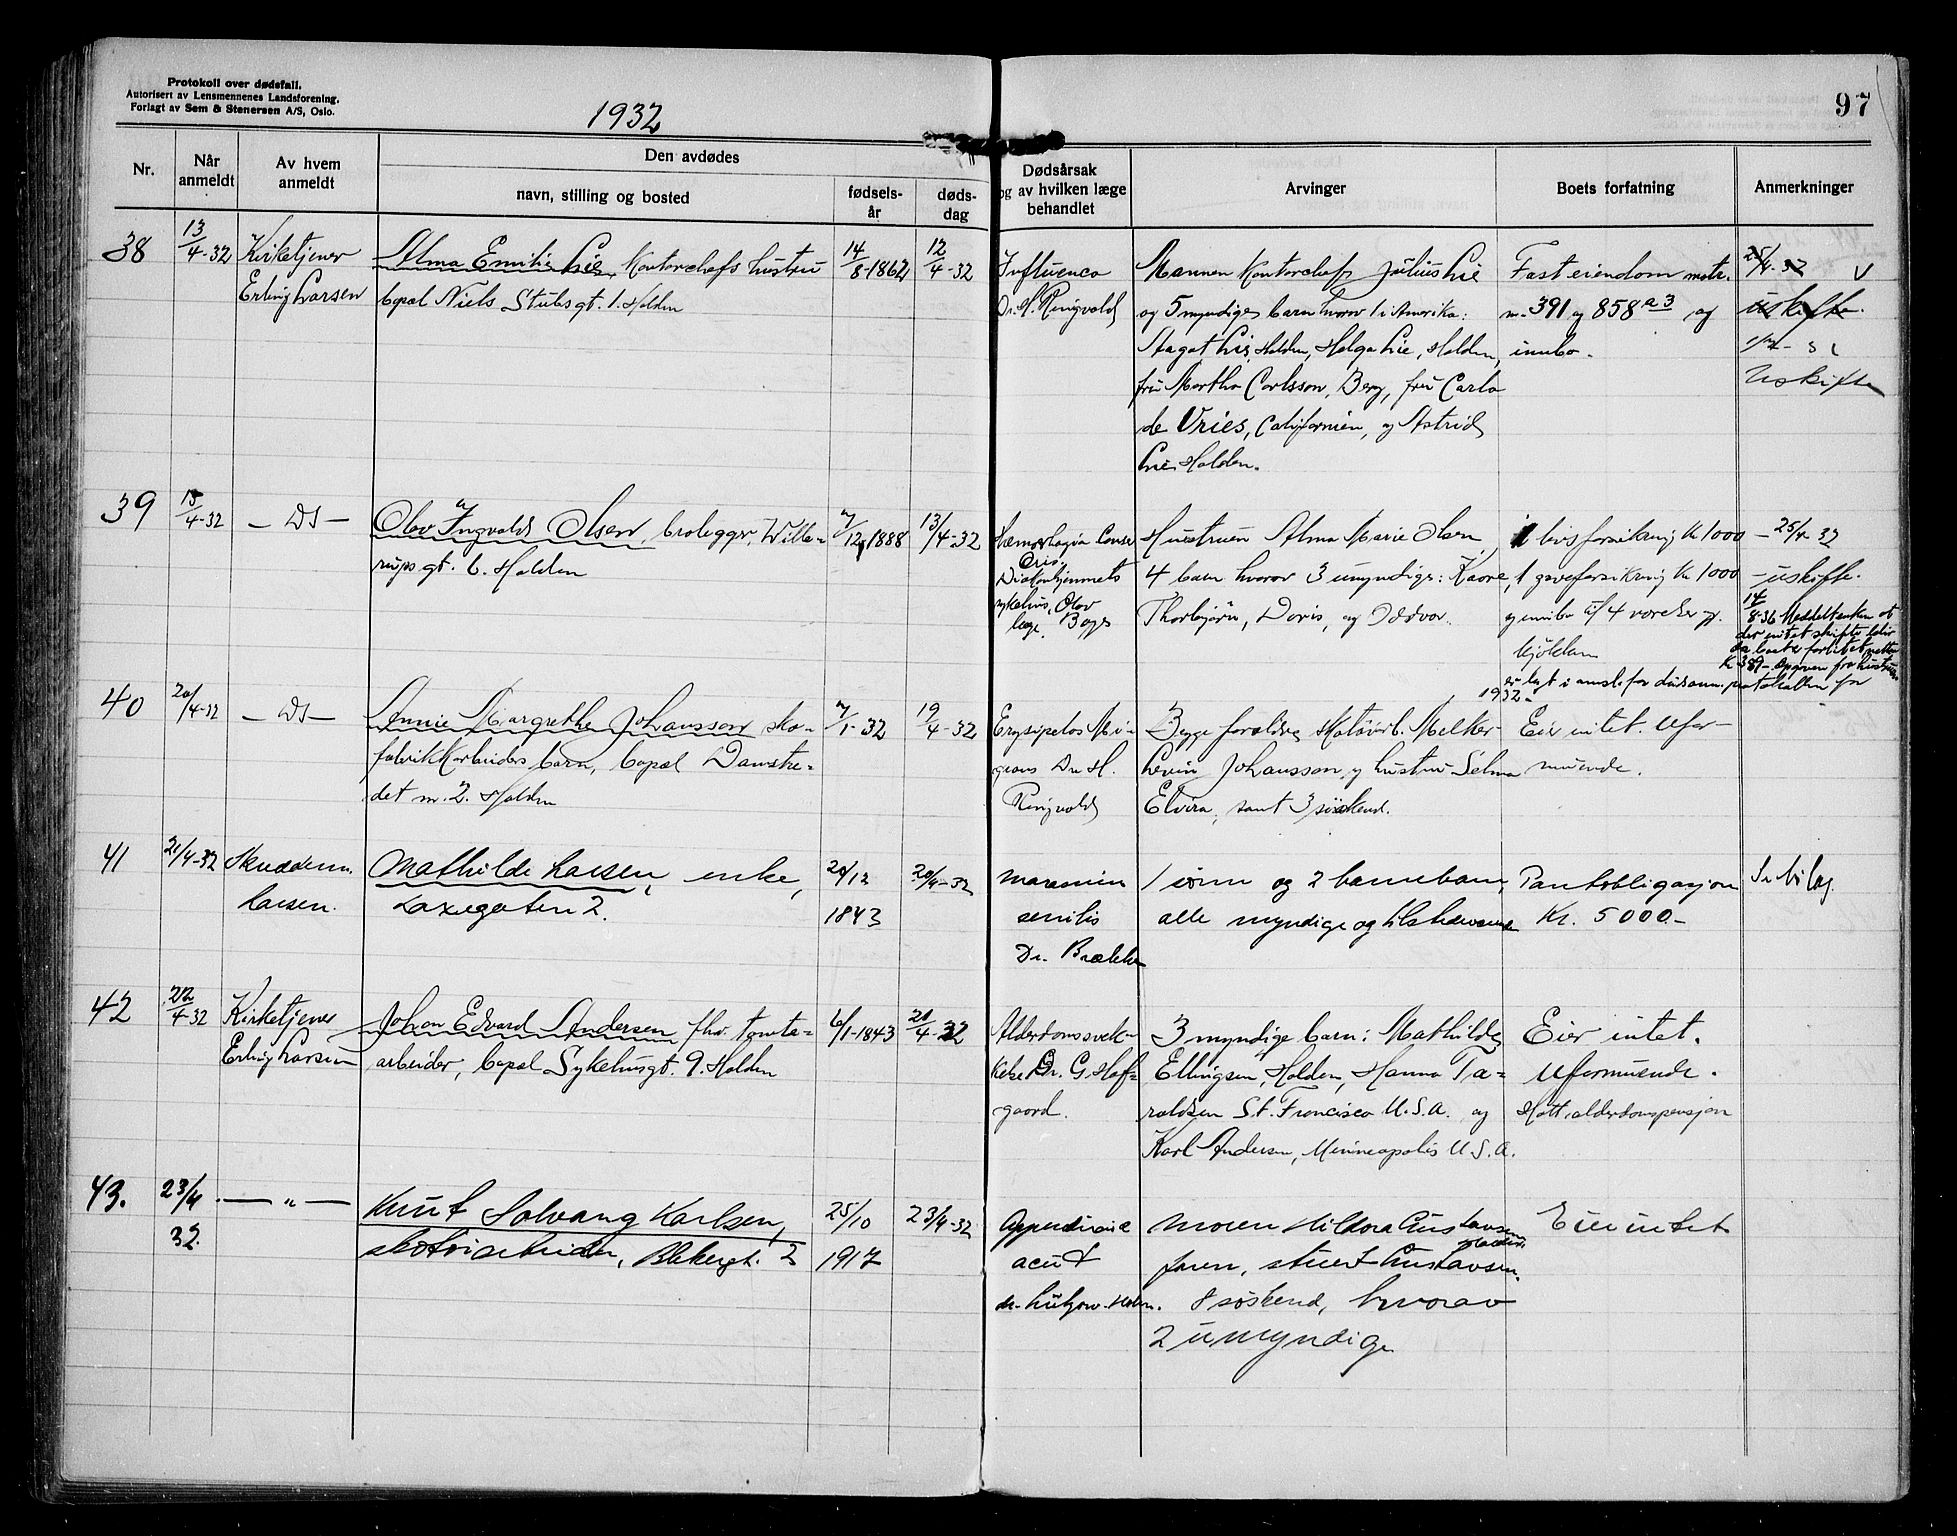 Protokoll over dødsfall.
Autorisert av Lensmennenes Landsforening.
Forlagt av Sem & Stenersen A/S, Oslo.
1932
97
Nr.
Når anmeldt
Av hvem anmeldt
Den avdødes
navn, stilling og bosted
fødselsår
dødsdag
Dødsårsak
og av hvilken læge
behandlet
Arvinger
Boets forfatning
Anmerkninger
38
13/4-32
Kirketjener
Erling Larsen
Alma Emilie Lie, Kontorchefs hustru
bopæl Niels Stubsgt. 1. Halden
14/8-1862
12/4-32
Influenca
Dr. H. Ringvold
Mannen Kontorchef Julius Lie
og 5 myndige barn hvorav 1 i Amerika:
Aagot Lie, Halden, Helga Lie, Halden,
fru Martha Carlsson, Berg, fru Carla
de Vries, Californien, og Astrid
Lie Halden.
Fast eiendom matr.
nr. 391 og 858 a3 og
innbo.
25/4-32
uskifte.
Uskifte
39
15/4-32
- Ds -
Olav Ingvald Olsen, brolegger, Wille-
rupsgt. 6. Halden
7/12 1888
13/4-32
Diakonhjemmets
sykehus, Olav
læge.
Hustruen Alma Marie Olsen
4 barn hvorav 3 umyndige: Kaare,
Thorbjørn, Doris, og Oddvar.
1 livsforsikring Kr 1000
1 gaveforsikring Kr 1000
og innbo af 4 værelser og
kjøkken
- 25/4-32
- uskifte.
14/8-36 Meddelt enken at
1932-
40
20/4-32
- Ds -
Annie Margrethe Johansson sko-
fabrikkarbeiders barn, bopæl Danske-
det nr. 2. Halden
7/1-32
19/4-32
Erysipelas Mi-
grans Dr H.
Ringvold
Begge forældre Skotøiarb. Melker
Levin Johansson, og hustru Selma
Elvira, samt 3 søskend.
Eier intet. Ufor-
muende.
41
21/4-32
Skreddern.
Larsen.
Mathilde Larsen, enke,
Laxegaten 2.
20/12
1843
20/4-32
marasmus
senilis
Dr. Brække
1 sønn og 2 barnebarn,
alle myndige og tilstedeværende
Pantobligasjon
Kr. 5000.-
Se bilag.
42
22/4-32
Kirketjener
Erling Larsen
Johan Edvard Andersen fhv. tomte-
arbeider, bopæl Sykehusgt. 9. Halden
6/1-1843
21/4-32
Alderdomssvek-
kelse Dr. G. Hof-
gaard.
3 myndige barn: Mathilde
Ellingsen, Halden, Hanna Ta-
raldsen St. Francisco U.S.A. og
Karl Andersen, Minneapolis U.S.A.
Eier intet.
Uformuende.
Hatt alderdomspensjon
43.
23/4
32.
- " -
Knut Solvang Karlsen,
skotøiarbeider, Blekergt. 2
25/10
1917
23/4-32
Appendicite
acut
dr. Lützow-Holm.
Moren Hildora Gustavsen
faren, stuert Gustavsen.
8 søskend, hvorav
2 umyndige
Eier intet